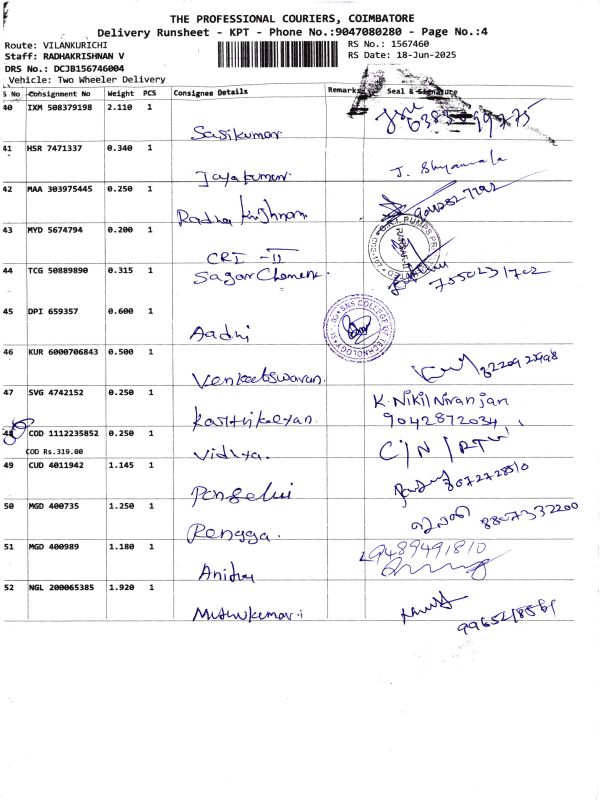 THE PROFESSIONAL COURIERS, COIMBATORE
Delivery Runsheet - KPT - Phone No.:9047080280 - Page No.:4
Route: VILANKURICHI
RS No.: 1567460
Staff: RADHAKRISHNAN V
RS Date: 18-Jun-2025
DRS No.: DCJB156746004
Vehicle: Two Wheeler Delivery
S No Consignment No Weight PCS Consignee Details Remarks Seal & Signature
40 IXM 508379198 2.110 1
Sasikumar
41 HSR 7471337 0.340 1
Jayakumar J. Shyamala
42 MAA 303975445 0.250 1
Radha Krishnan
43 MYD 5674794 0.200 1
CRI - II
44 TCG 50889890 0.315 1
Sagar Chement 7550231702
45 DPI 659357 0.600 1
Aadhi SNS COLLEGE OF TECHNOLOGY
46 KUR 6000706843 0.500 1
Venkateswaran
47 SVG 4742152 0.250 1 K. Nikil Niranjan
Karthikeyan 9042872034
48 COD 1112235852 0.250 1
COD Rs.319.00 Vidhya C/N/RTN
49 CUD 4011942 1.145 1
Pongelvi 8072728510
50 MGD 400735 1.250 1
Rengga 8807332200
51 MGD 400989 1.180 1 9489491810
Anitha
52 NGL 200065385 1.920 1
Muthukumar